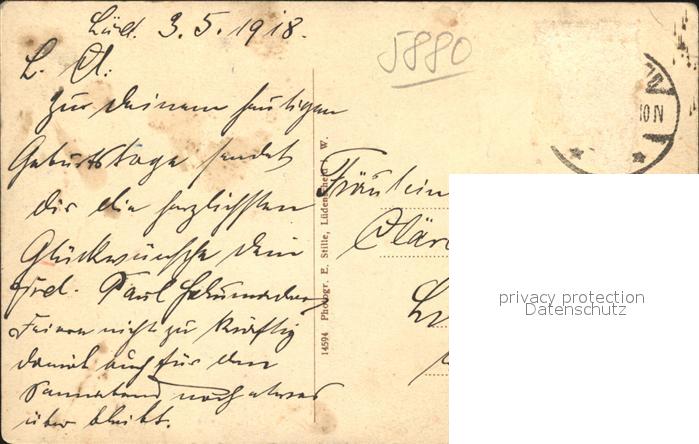 Lüd. 3.5.1918.
5880
L. Cl.
Zur Deinem heutigen
Geburtstage sendet
dir die herzlichsten
Glückwünsche dein
Frd. Paul
Feiere nicht zu kräftig
damit auch für den
Sonnabend noch etwas
über bleibt.
14594 Photogr. E. Stille, Lüdenscheid i. W.
Fräulein
10 N
privacy protection
Datenschutz